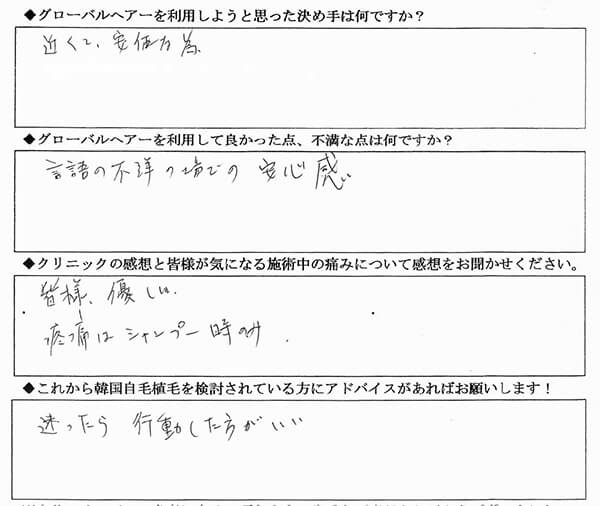 ◆グローバルヘアーを利用しようと思った決め手は何ですか？
近くて、安価な為
◆グローバルヘアーを利用して良かった点、不満な点は何ですか？
言語の不詳の場での安心感
◆クリニックの感想と皆様が気になる施術中の痛みについて感想をお聞かせください。
皆様、優しい.
疼痛はシャンプー時のみ.
◆これから韓国自毛植毛を検討されている方にアドバイスがあればお願いします！
迷ったら 行動した方がいい